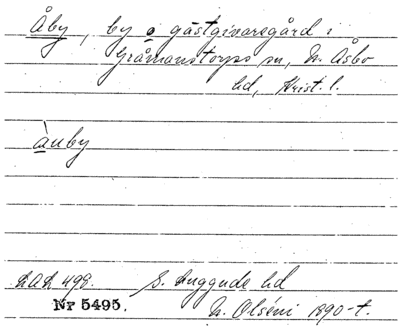 Åby, by o gästgivaregård i
Gråmanstorps sn, N. Åsbo
hd, Krist. l.
àuby
LAL 498. S. Luggude hd
Nr 5495. N. Olséni 1890-t.